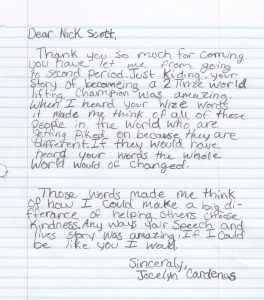 Dear Nick Scott,
Thank you so much for coming
you have let me from going
to second period. Just Kiding, your
story of becomeing a 2 time world
lifting Champion was amazing.
When I heard your wize words
it made me think of all of these
people in the world who are
getting piked on because they are
different. If they would have
heard your words the whole
world would of changed.
Those words made me think
of how I could make a big di-
fferance of helping others choose
Kindness. Any ways your speech and
lives story was amazing. If I Could
be like you I would.
Sincerally,
Jocelyn Cardenas